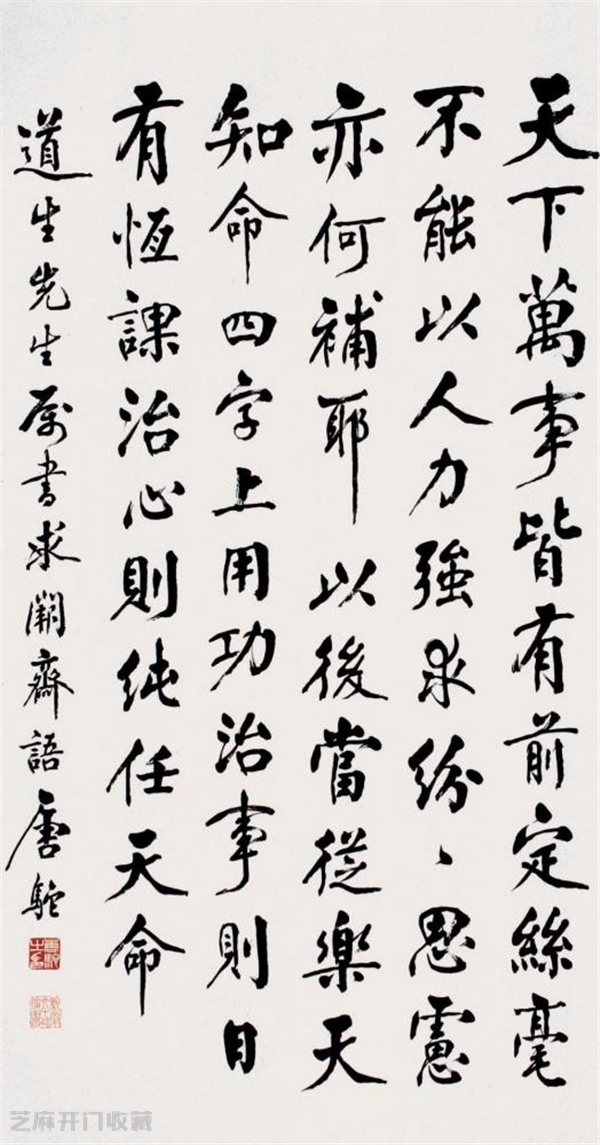 天下萬事皆有前定絲毫
不能以人力強求紛〻思慮
亦何補耶以後當從樂天
知命四字上用功治事則日
有恆課治心則純任天命
道生先生屬書求闕齋語唐駝
芝麻开门收藏